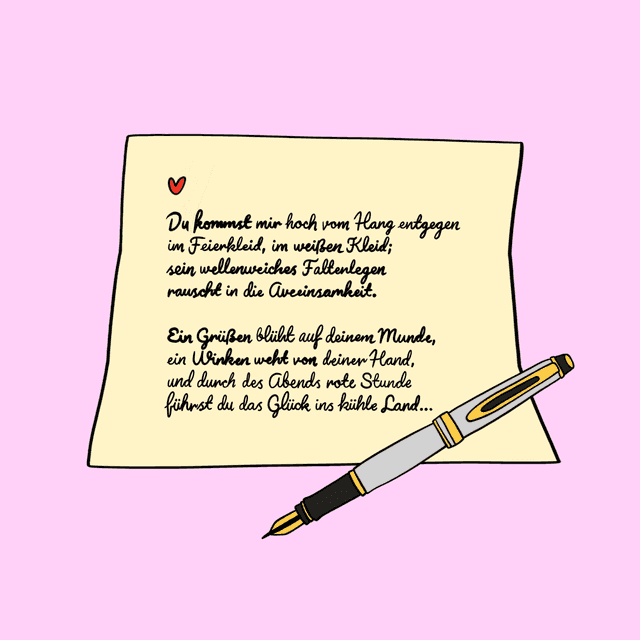 Du kommst mir hoch vom Hang entgegen
im Feierkleid, im weißen Kleid;
sein wellenweiches Faltenlegen
rauscht in die Aveeinsamkeit.
Ein Grüßen blüht auf deinem Munde,
ein Winken weht von deiner Hand,
und durch des Abends rote Stunde
führst du das Glück ins kühle Land...